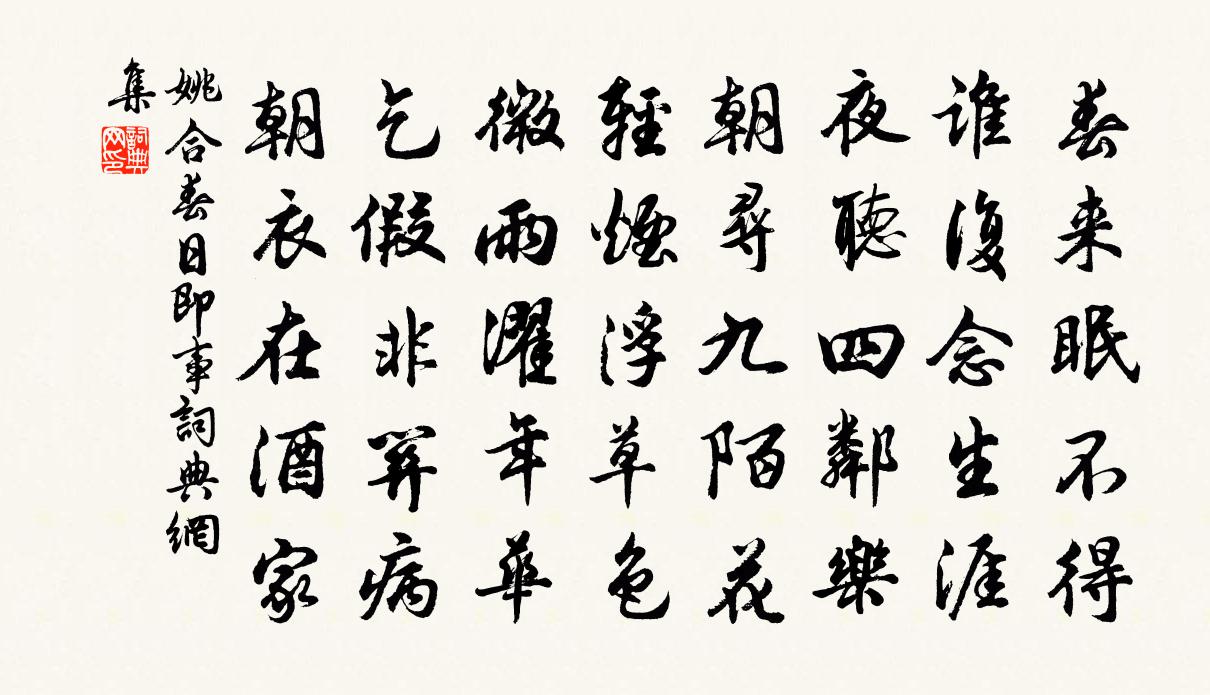 春来眠不得
誰復念生涯
夜聽四鄰樂
朝尋九陌花
輕煙浮草色
微雨濯年華
乞假非關病
朝衣在酒家
姚合春日即事詞典網
集
詞典網印